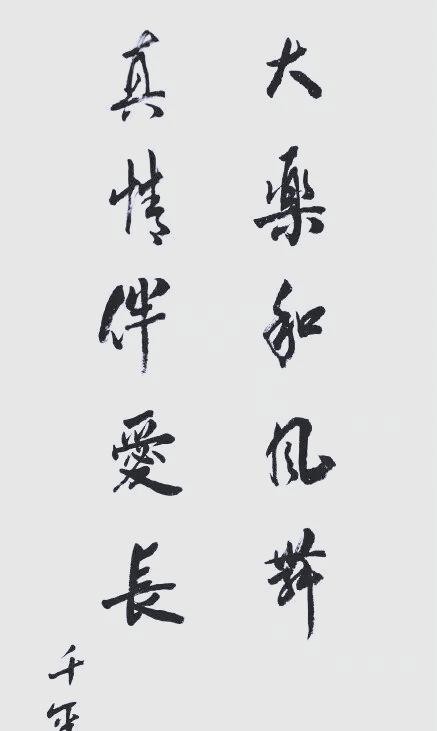 大樂和風舞
真情伴愛長
千年